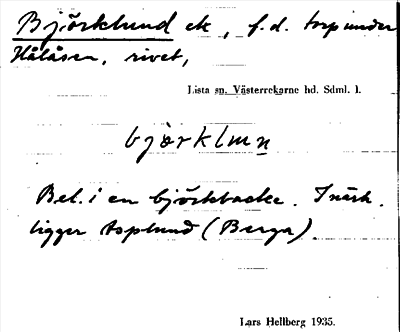 Björklund ek, f.d. torp under
Hålåsen, rivet,
Lista sn. Västerrekarne hd. Sdml. l.
björklun
Bel. i en björkbacke. I närh.
ligger Asplund (Berga).
Lars Hellberg 1935.